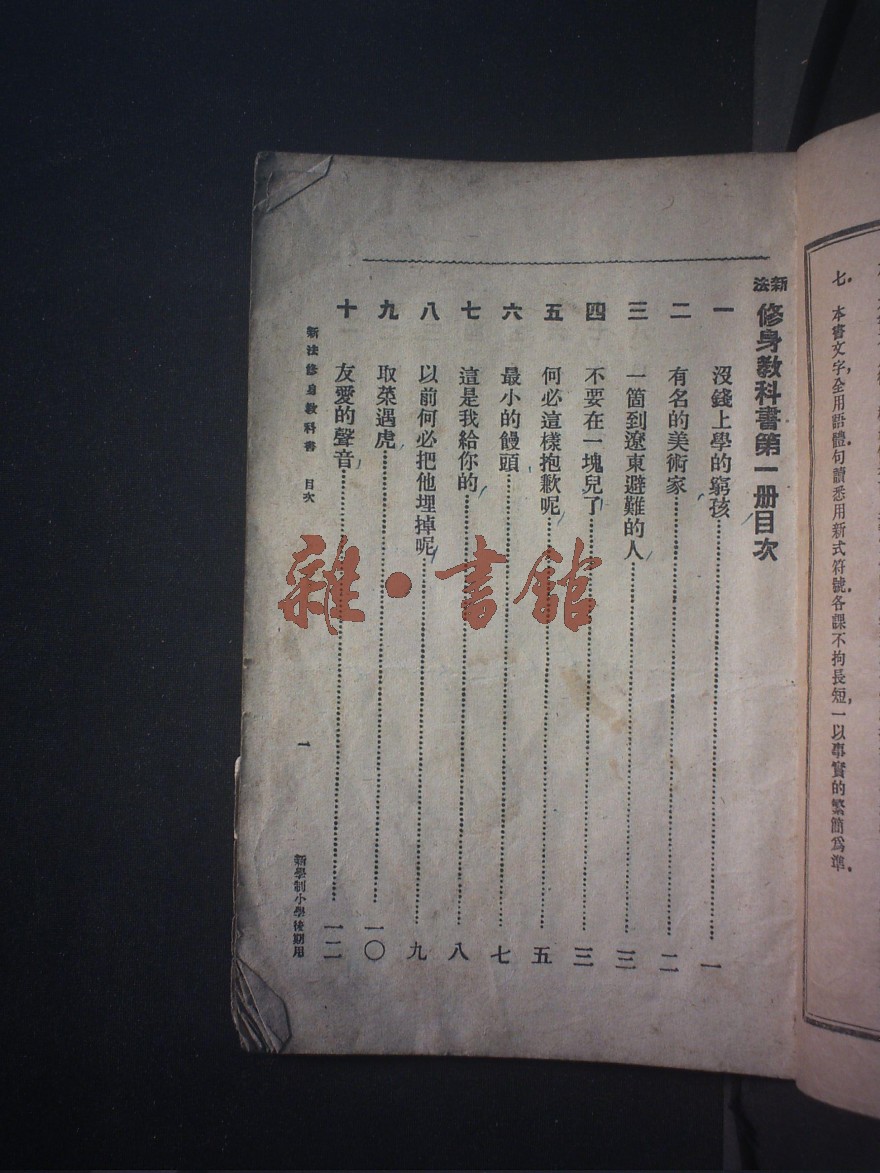 七、本書文字，全用語體句讀悉用新式符號各課不拘長短，一以事實的繁簡爲準。
新法修身教科書第一册目次
一 沒錢上學的窮孩 一
二 有名的美術家 二
三 一箇到遼東避難的人 三
四 不要在一塊兒了 三
五 何必這樣抱歉呢 五
六 最小的饅頭 七
七 這是我給你的 八
八 以前何必把他埋掉呢 九
九 取菜遇虎 一〇
十 友愛的聲音 一二
新法修身教科書 目次
一
新學制小學後期用
雜·書館